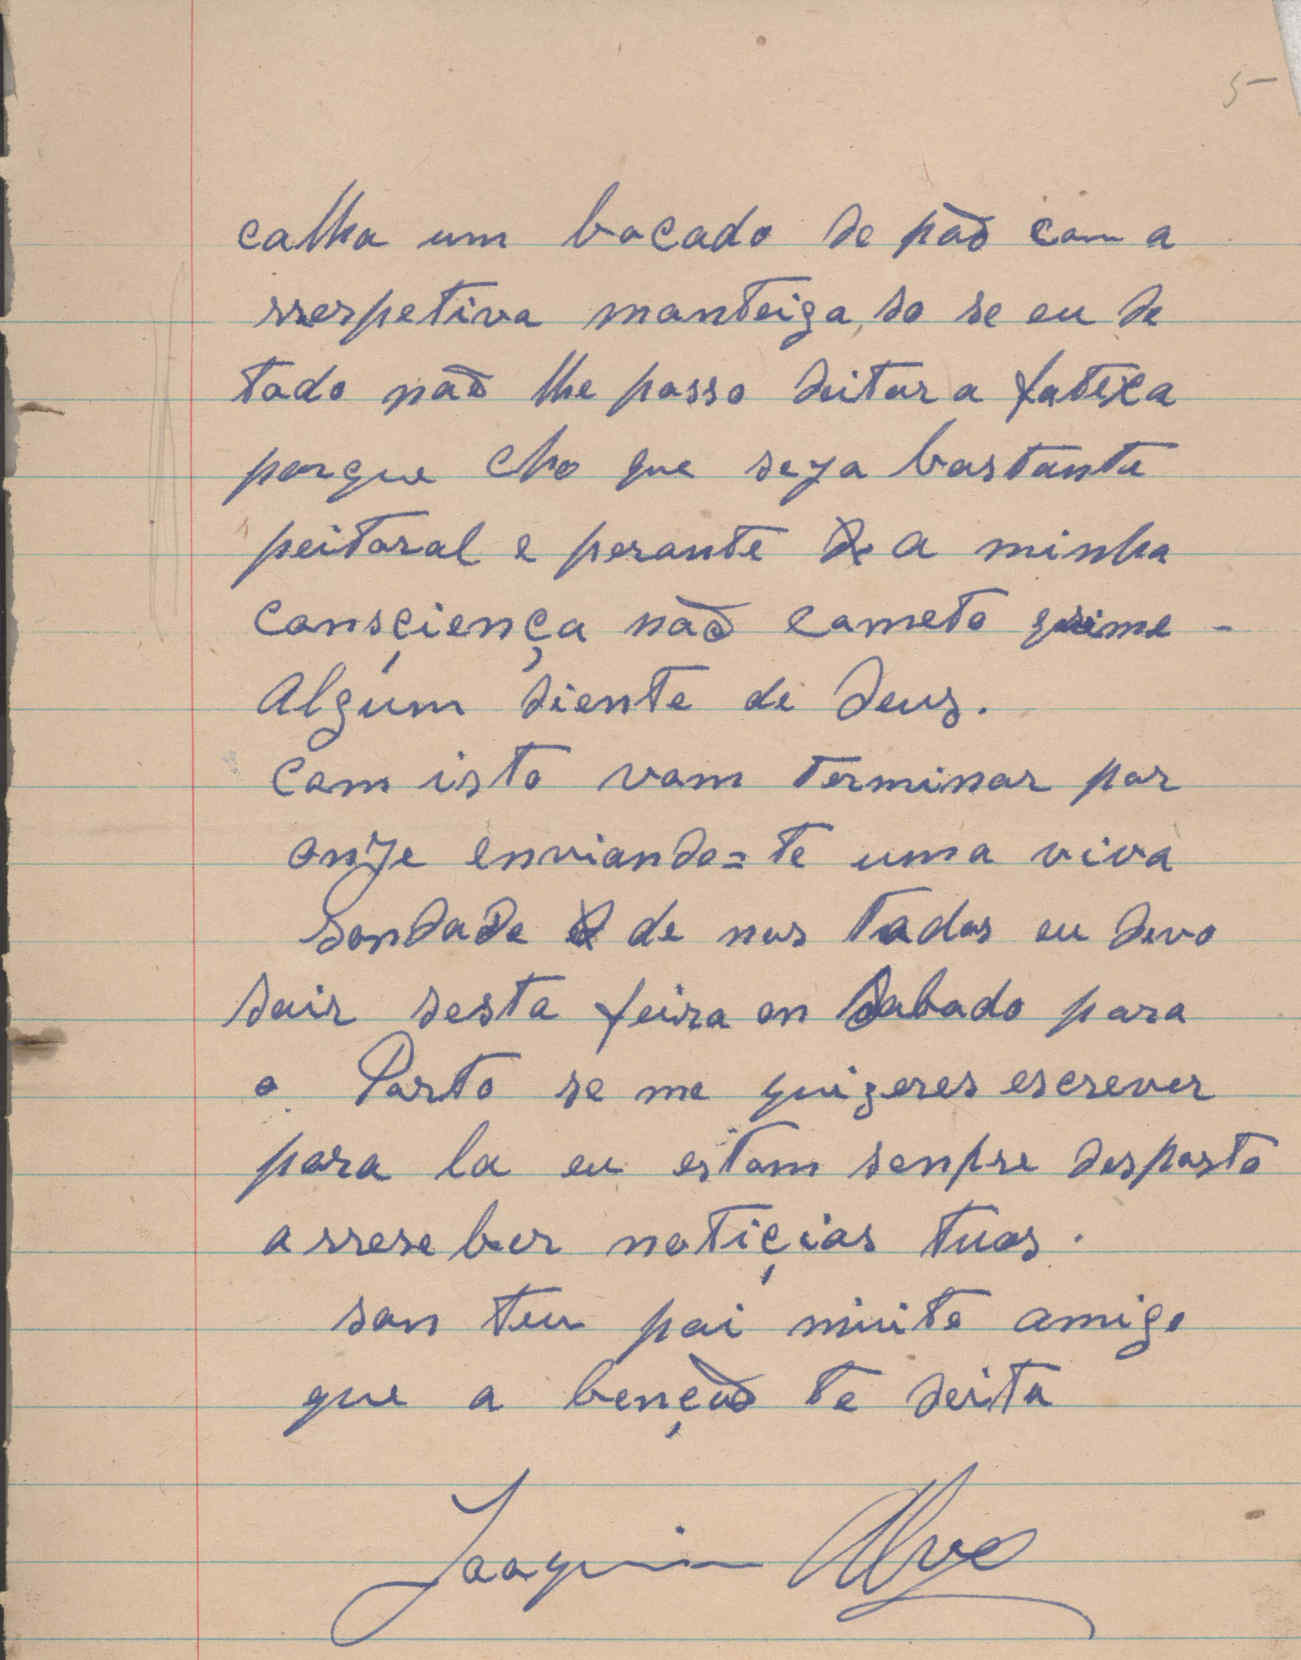 5
calha um bocado de pão com a
rrespetiva manteiga, so se eu de
todo não lhe posso deitar a fatexa
porque cho que seya bastante
peitoral e perante a minha
consçiença não cometo quime
Algum diente de Deus.
Com isto vom terminar por
onje enviando=te uma viva
Sondade de nos todos eu devo
sair sesta feira on Sabado para
o Porto se me quizeres escrever
para la eu estom senpre desposto
a rreseber notiçias tuas.
son teu pai muito amigo
que a bençaõ te deita
Joaquim Alves